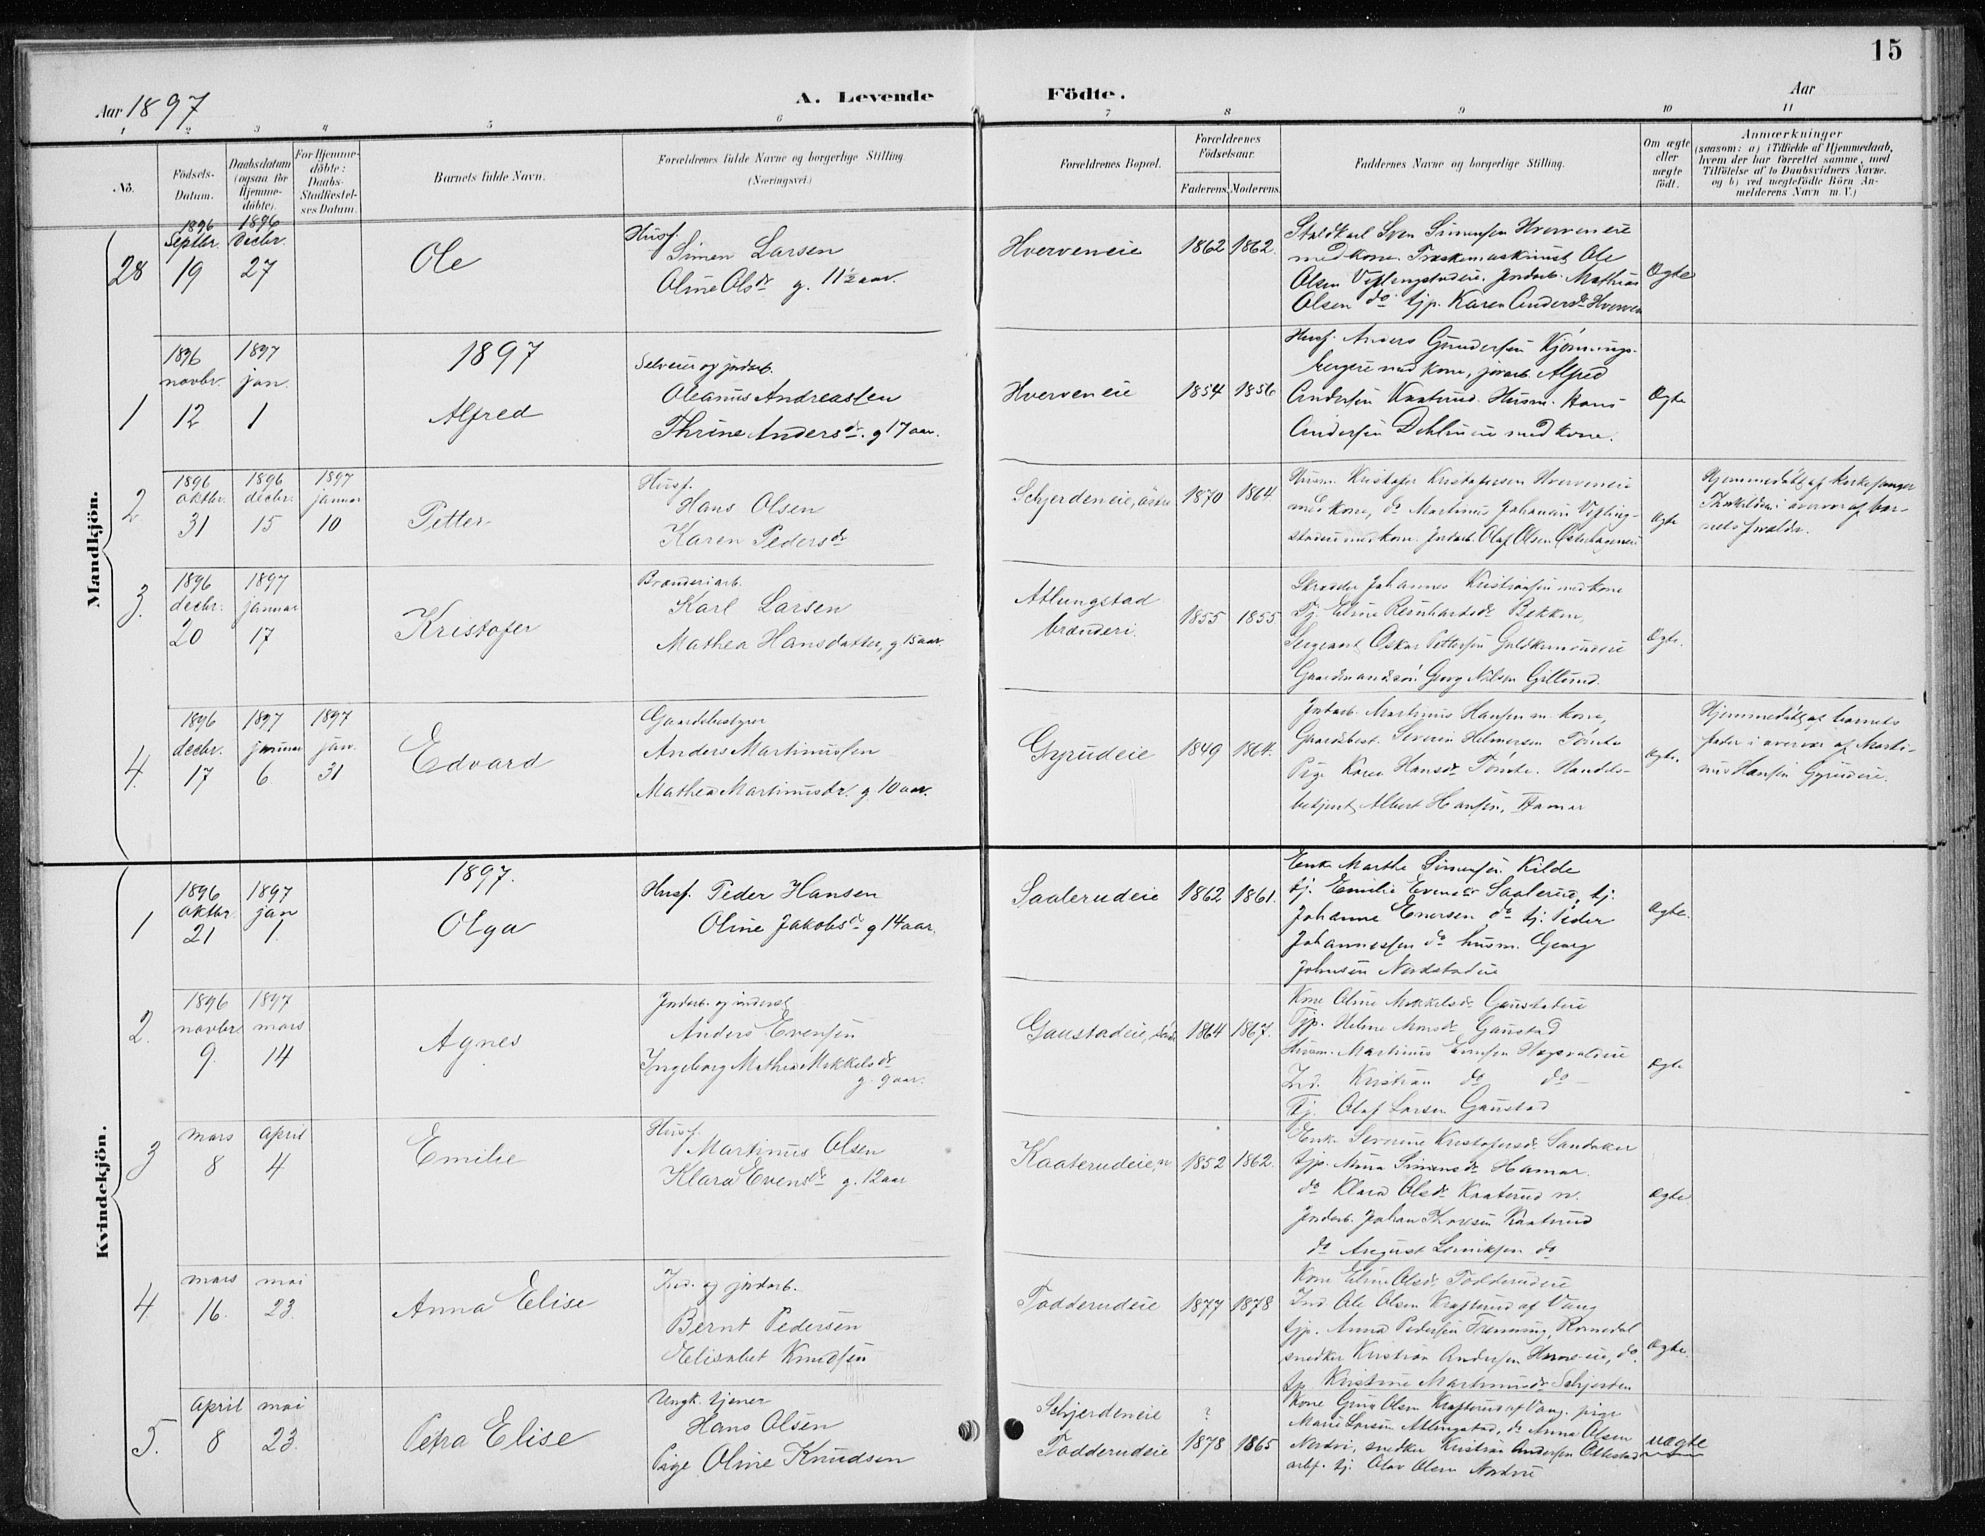 15
Aar 1897
A. Levende Födte.
Aar
1 2 3 4 5 6 7 8 9 10 11
No.
Födsels-Datum.
Daabsdatum (ogsaa for Hjemme-döbte).
For Hjemme-döbte: Daabs-Stadfæstel-ses Datum.
Barnets fulde Navn.
Forældrenes fulde Navne og borgerlige Stilling.
(Næringsvei.)
Forældrenes Bopæl.
Forældrenes Födselsaar.
Faderens. Moderens.
Faddernes Navne og borgerlige Stilling.
Om ægte eller uægte födt.
Anmærkninger
(saasom: a) i Tilfælde af Hjemmedaab,
hvem der har forrettet samme, med
Tilföielse af to Daabsvidners Navne,
og b) ved uægtefödte Börn An-
melderens Navn m. V.)
Mandkjön.
28
1896 Septbr. 19
1896 Decbr. 27
Ole
Husf.
Simen Larsen
Oline Olsdr. g. 11½ aar.
Hverveneie
1862 1862
Staldkarl Sven Simensen Hverveneie
med kone. Træskemaskinist Ole
Olsen Jordarb. Mathias
Olsen do tjp. Karen Andersdr Hverven
Ægte
1897
1
1896 novbr. 12
1897 jan. 1
Alfred
Selveier og jordarb.
Oleanus Andreassen
Thrine Andersdr. g 17 aar.
Hverveneie
1854 1856
Husf. Anders Gundersen
med kone, jorarb. Alfred
Andersen Kaaterud. Husm. Hans
Andersen Dehlineie med kone.
Ægte
2
1896 oktbr. 31
1896 decbr. 15
1897 januar 10
Petter
Husf.
Hans Olsen
Karen Pedersdr
Schjerdeneie, østre
1870 1864
Husm. Kristofer Kristofersen Hverveneie
med kone, do Martinus Johansen
med kone. Jordarb. Olaf Olsen
Ægte
Hjemmedöbt af kirkesanger
i overvær af bar-
nets foreldr.
3.
1896 decbr. 20
1897 januar 17
Kristofer
Brænderiarb.
Karl Larsen
Mathea Hansdatter, g 15 aar.
Atlungstad
brænderi.
1855 1855
Skrædder Johannes Kristiansen med kone
Pig. Eline Bernhardsdr Bekken,
Sergeant Oskar Pettersen
Gaardmandssön Georg Nilsen Gillund.
Ægte.
4.
1896 decbr. 17
1897 januar 6
1897 jan. 31
Edvard
Gaardsbestyrer
Anders Martinussen
Mathea Martinusdr. g 10 aar.
Gyrudeie
1849 1864.
Jordarb. Martinus Hansen m. kone,
Gaardsbest. Severin Helmersen Tomte
Pige Karen Hansdr Tomte. Handels-
betjent Albert Hansen, Hamar
Ægte.
Hjemmedöbt af barnets
fader i overvær af Marti-
nus Hansen Gyrudeie.
Kvindekjön.
1897.
1
1896 oktbr. 21
1897 jan 1.
Olga
Husf. Peder Hansen
Oline Jakobsdr g 14 aar.
Saalerudeie
1862 1861.
Enke Marthe Simensen Kilde
tj. Emilie Evensdr Saalerud, tj.
Johanne Enersen do tj. Peder
Johannessen do husm. Georg
Johnsen Nordstadeie
Ægte.
2.
1896 novbr 9.
1897 mars 14
Agnes
Jordarb. og inderst
Anders Evensen
Ingeborg Mathea Mikkelsdr
g. 9 aar.
Gaustadeie, söndr
1864 1867.
Kone Oline Mikkelsdr Gaustadeie
Tjp. Helene Gaustad
Husm. Martinus Evensen
Ind. Kristian do do
Tj. Olaf Larsen Gaustad
Ægte
3
mars 8
april 4
Emilie
Husf.
Martinus Olsen
Klara Evensdr g. 12 aar
Kaaterudeie, n
1852 1862.
Enke Severine Kristofersdr Sandaker
tjp. Anna Simensdr Hamar.
do Klara Olsdr Kaaterud n.
Jordarb. Johan Thoresen Kaaterud
do August do
Ægte
4.
mars 16.
mai 23.
Anna Elise
Ind. og jordarb.
Bernt Pedersen
Elisabet Knudsen
Todderudeie
1877 1878
Kone Eline Olsdr. Todderudeie
Ind Ole Olsen Krafterud af Vang
tjp. Anna Pedersen Romedal
snedker Kristian Andersen do.
tjp Kristine Martinusdr Schjerden
Ægte.
5.
april 8
mai 23.
Petra Elise
Ungk. tjener
Hans Olsen
Pige Oline Knudsen
Schjerdeneie
Todderudeie
?
1878 1865
Kone Olsen Krafterud af Vang. pige
Marie Larsen Atlungstad, do Anna Olsen
Nordvi, snedker Kristian Andersen Ottestad
arbf. tj. Olav Olsen Nordvie
uægte